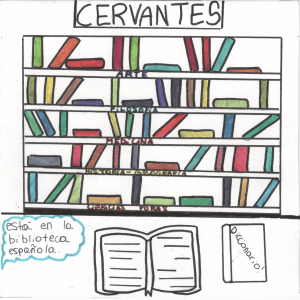 CERVANTES
ARTE
FILOSOFIA
MEDICINA
HISTORIA-GEOGRAFIA
CIENCIAS
está en la
biblioteca
española
Diccionario!